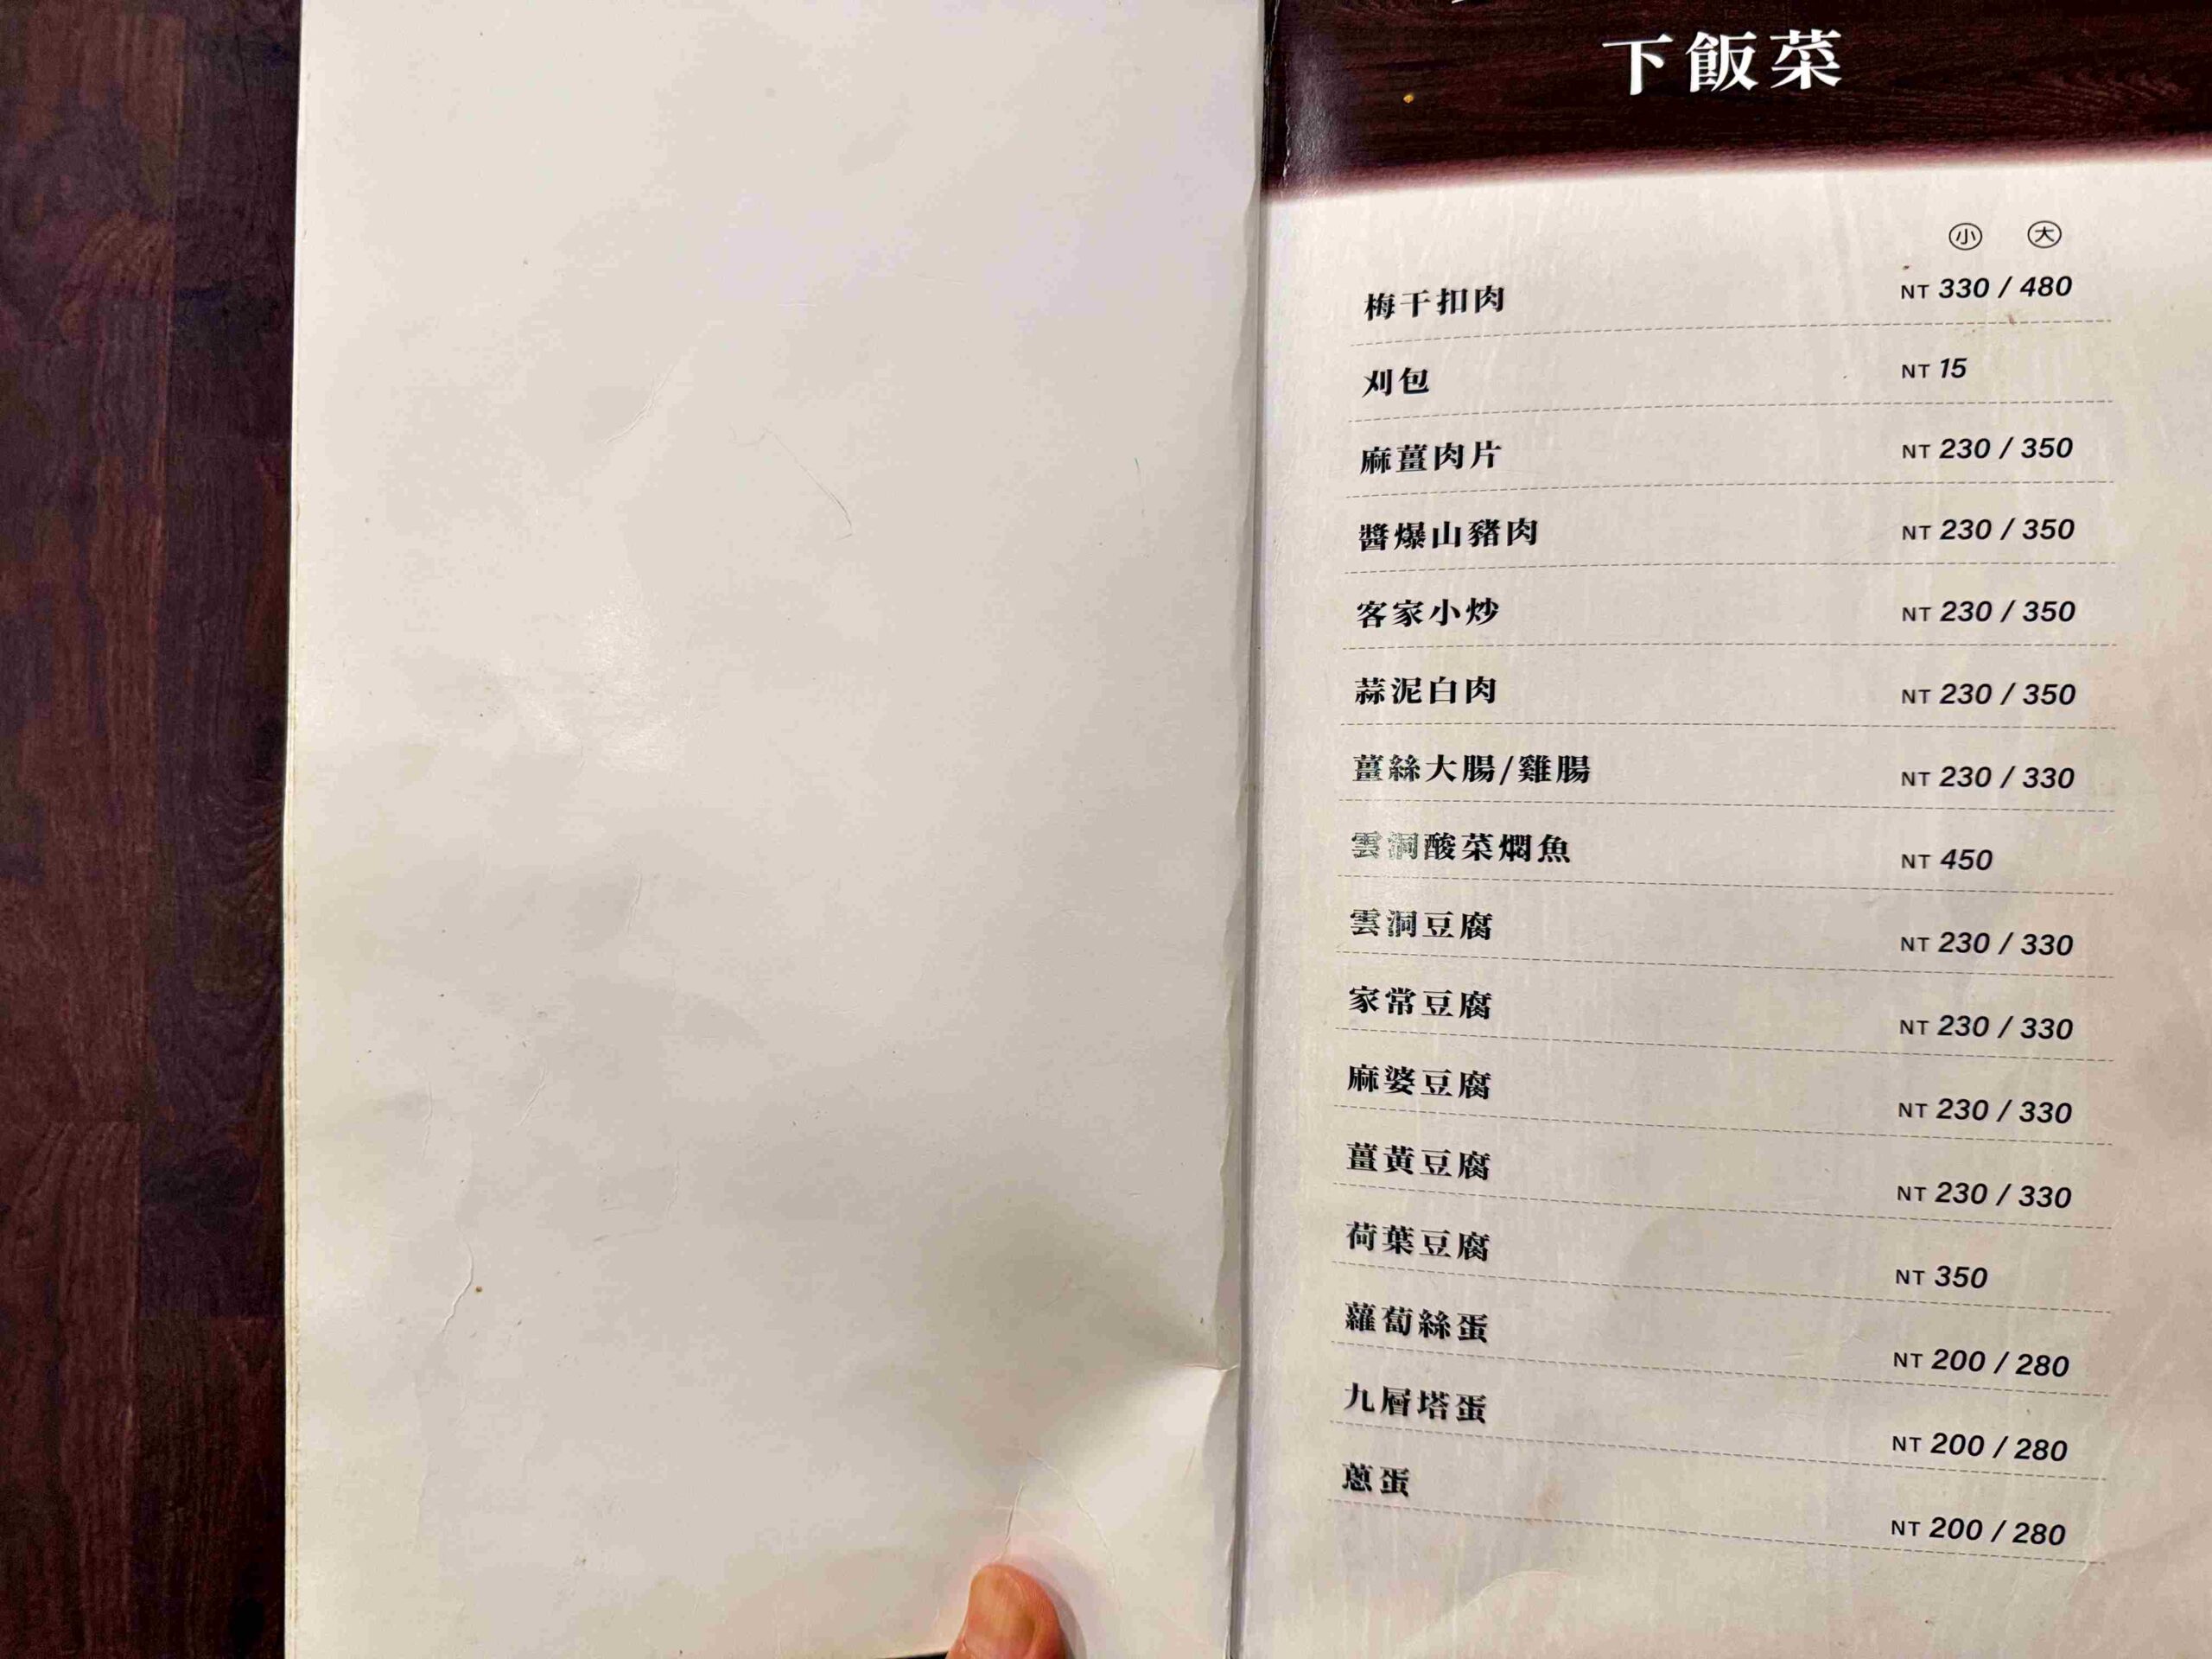 下飯菜
小 大
梅干扣肉 NT 330 / 480
刈包 NT 15
麻薑肉片 NT 230 / 350
醬爆山豬肉 NT 230 / 350
客家小炒 NT 230 / 350
蒜泥白肉 NT 230 / 350
薑絲大腸/雞腸 NT 230 / 330
雲洞酸菜燜魚 NT 450
雲洞豆腐 NT 230 / 330
家常豆腐 NT 230 / 330
麻婆豆腐 NT 230 / 330
薑黃豆腐 NT 230 / 330
荷葉豆腐 NT 350
蘿蔔絲蛋 NT 200 / 280
九層塔蛋 NT 200 / 280
蔥蛋 NT 200 / 280